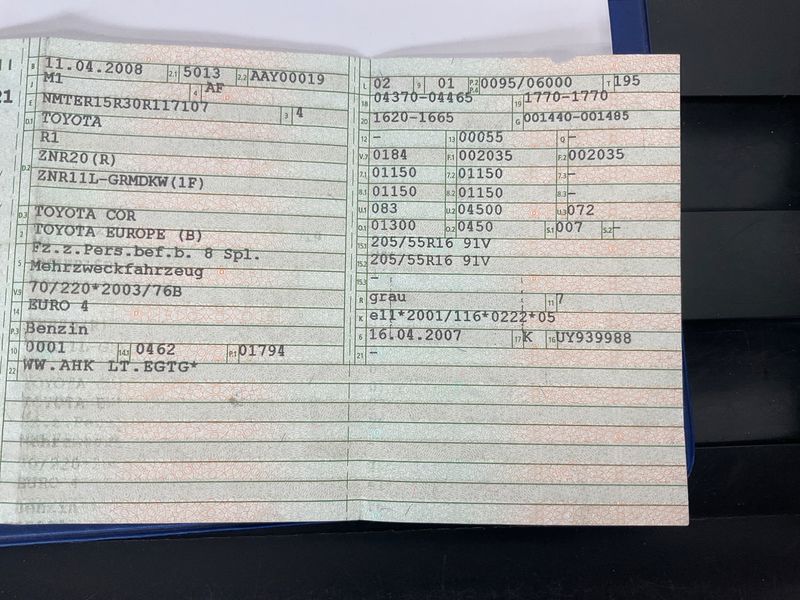 21
B 11.04.2008 2.1 5013 2.2 AAY00019
J M1 4 AF
E NMTER15R30R117107 3 4
D.1 TOYOTA
R1
D.2 ZNR20(R)
ZNR11L-GRMDKW(1F)
D.3 TOYOTA COR
2 TOYOTA EUROPE (B)
5 Fz.z.Pers.bef.b. 8 Spl.
Mehrzweckfahrzeug
V.9 70/220*2003/76B
14 EURO 4
P.3 Benzin
10 0001 14.1 0462 P.1 01794
22 WW.AHK LT.EGTG*
L 02 9 01 P.2 P.4 0095/06000 T 195
18 04370-04465 19 1770-1770
20 1620-1665 G 001440-001485
12 - 13 00055 Q -
V.7 0184 F.1 002035 F.2 002035
7.1 01150 7.2 01150 7.3 -
8.1 01150 8.2 01150 8.3 -
U.1 083 U.2 04500 U.3 072
O.1 01300 O.2 0450 S.1 007 S.2 -
15.1 205/55R16 91V
15.2 205/55R16 91V
15.3 -
R grau 11 7
K e11*2001/116*0222*05
6 16.04.2007 17 K 16 UY939988
21 -